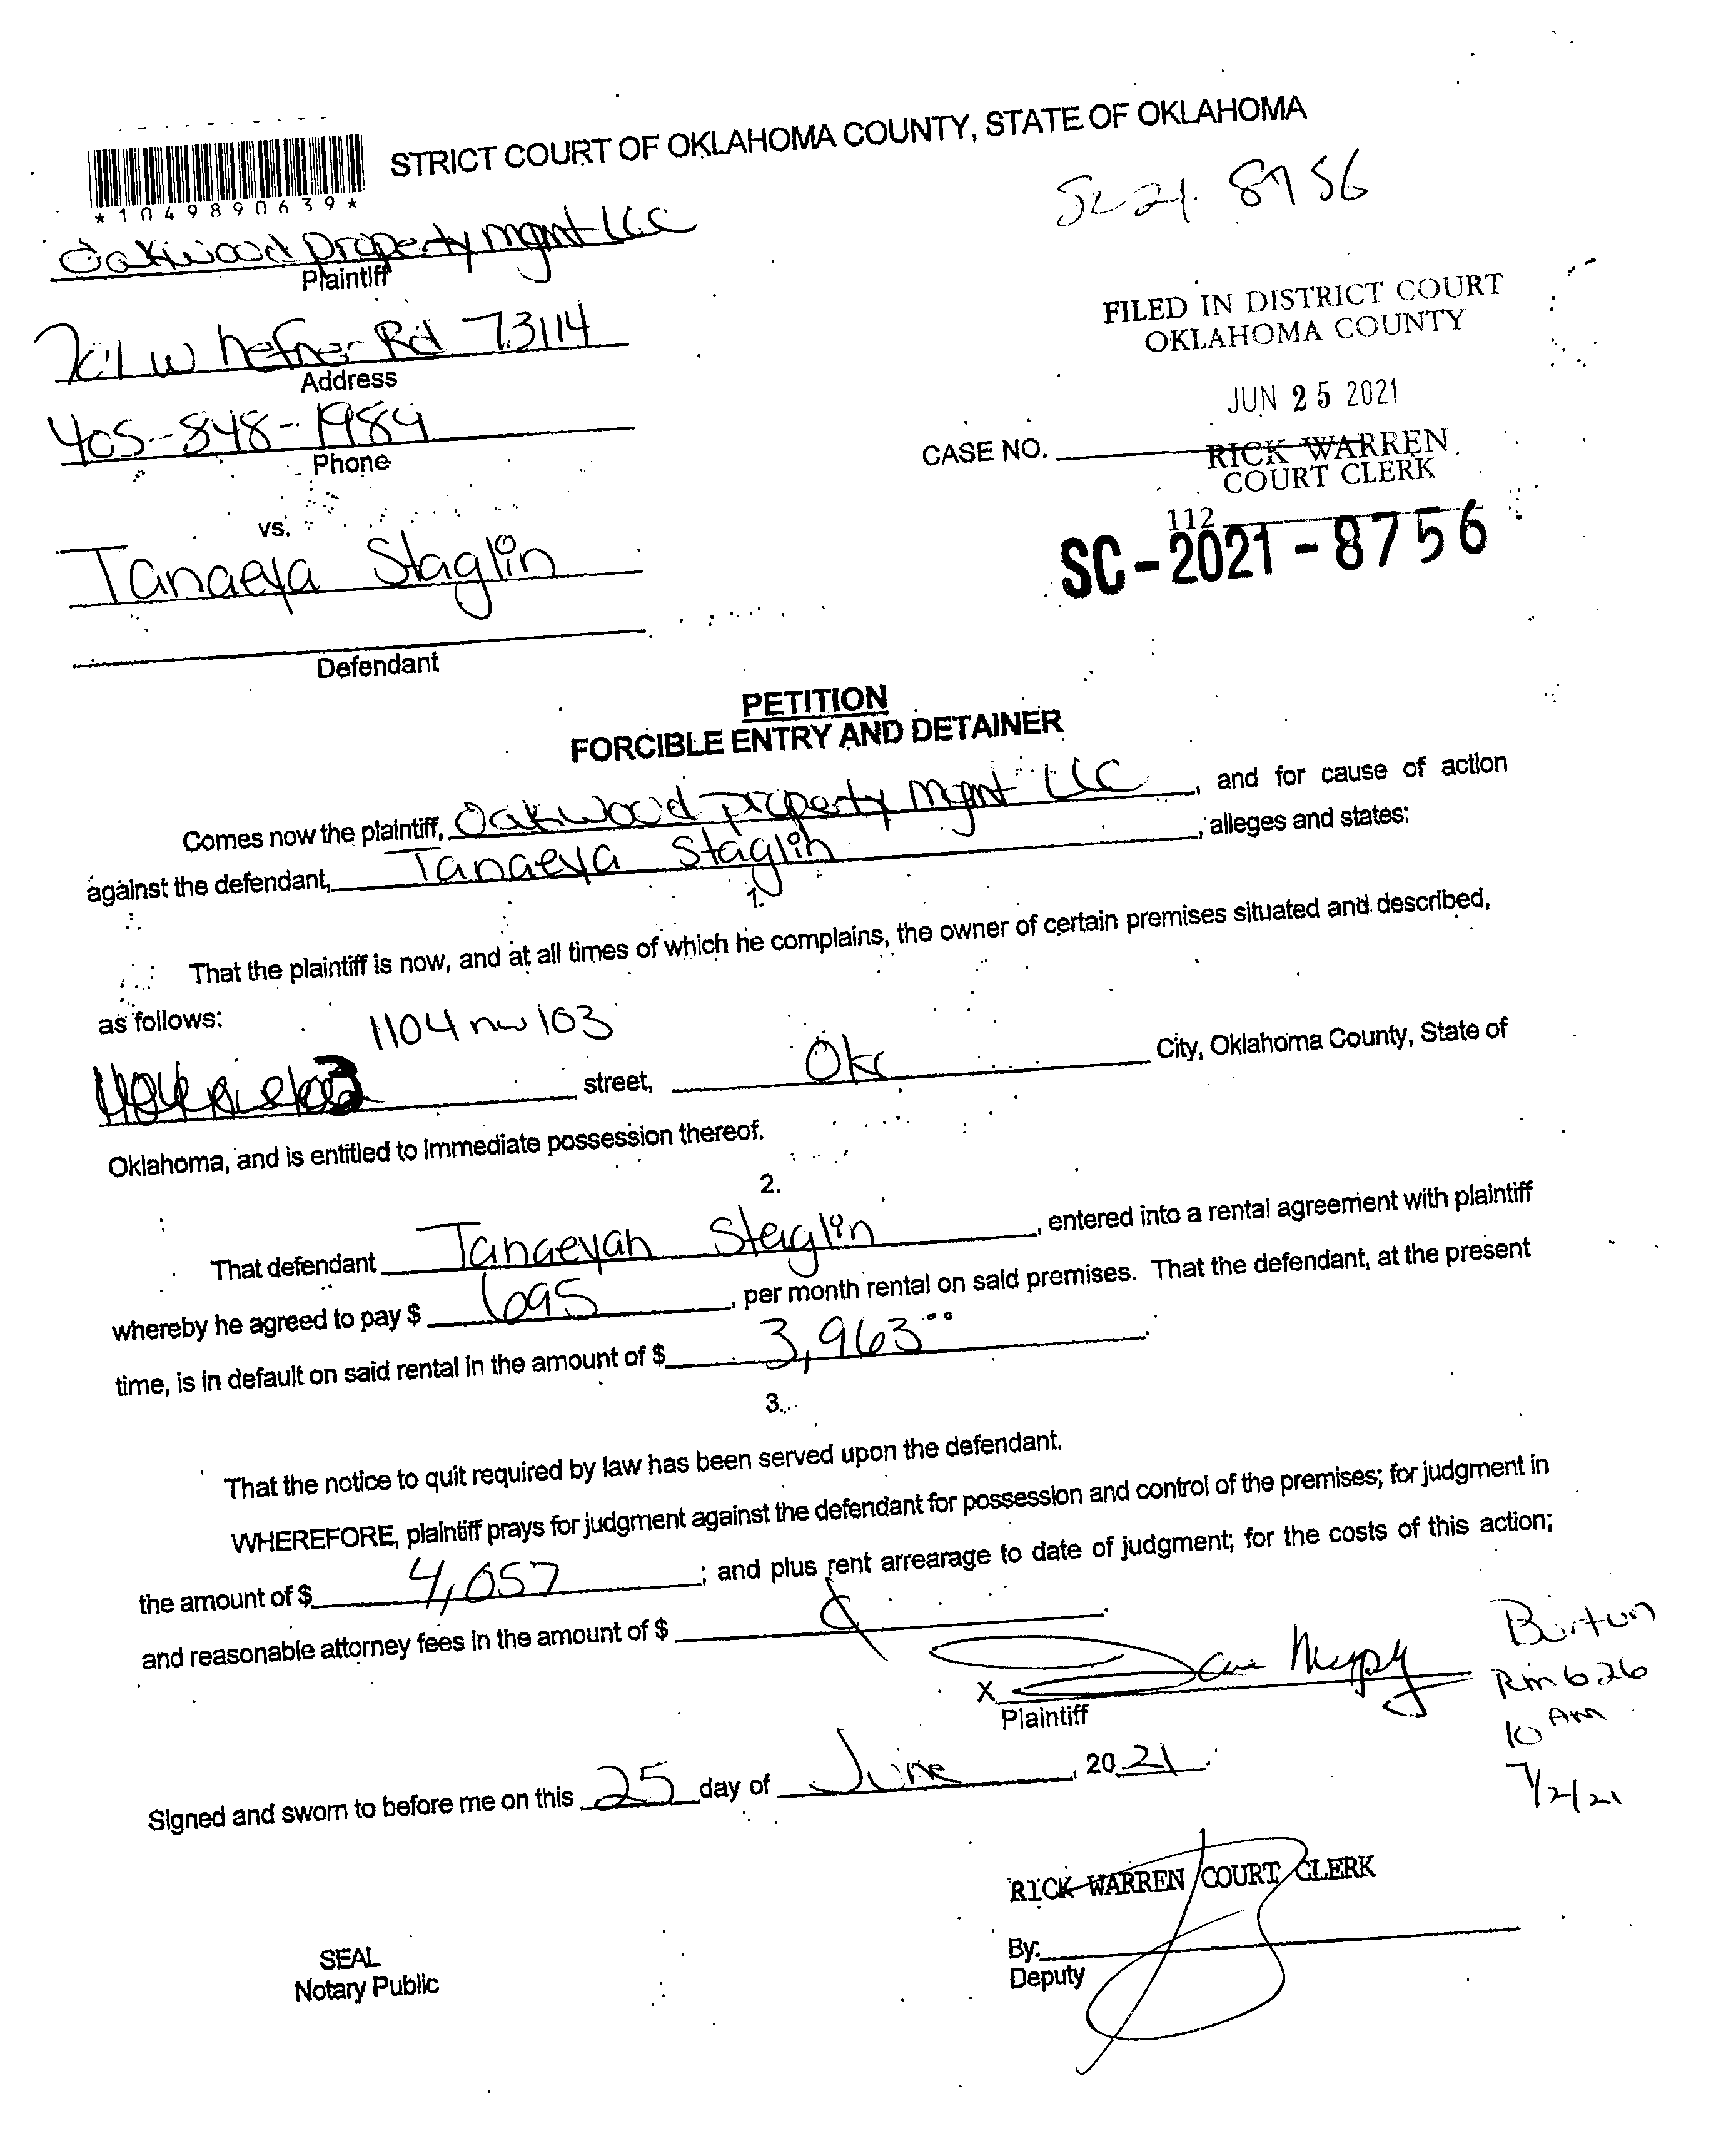 STRICT COURT OF OKLAHOMA COUNTY, STATE OF OKLAHOMA
*1049890639*
SC 21 8756
Oakwood Property Mgmt LLC
Plaintiff
701 W Hefner Rd 73114
Address
405-848-1984
Phone
FILED IN DISTRICT COURT
OKLAHOMA COUNTY
JUN 25 2021
CASE NO.
RICK WARREN
COURT CLERK
112
SC-2021-8756
vs.
Tanaeya Staglin
Defendant
PETITION
FORCIBLE ENTRY AND DETAINER
Comes now the plaintiff, Oakwood property Mgmt LLC, and for cause of action
against the defendant, Tanaeya Staglin, alleges and states:
1.
That the plaintiff is now, and at all times of which he complains, the owner of certain premises situated and described,
as follows:
1104 nw 103
street, Okc City, Oklahoma County, State of
Oklahoma, and is entitled to immediate possession thereof.
2.
That defendant Tanaeyah Staglin, entered into a rental agreement with plaintiff
whereby he agreed to pay $ 695, per month rental on said premises. That the defendant, at the present
time, is in default on said rental in the amount of $ 3,963.00.
3.
That the notice to quit required by law has been served upon the defendant.
WHEREFORE, plaintiff prays for judgment against the defendant for possession and control of the premises; for judgment in
the amount of $ 4,057; and plus rent arrearage to date of judgment; for the costs of this action;
and reasonable attorney fees in the amount of $
X
Plaintiff
Burton
Rm 626
10 AM
7/2/21
Signed and sworn to before me on this 25 day of June, 2021.
RICK WARREN COURT CLERK
By:
Deputy
SEAL
Notary Public